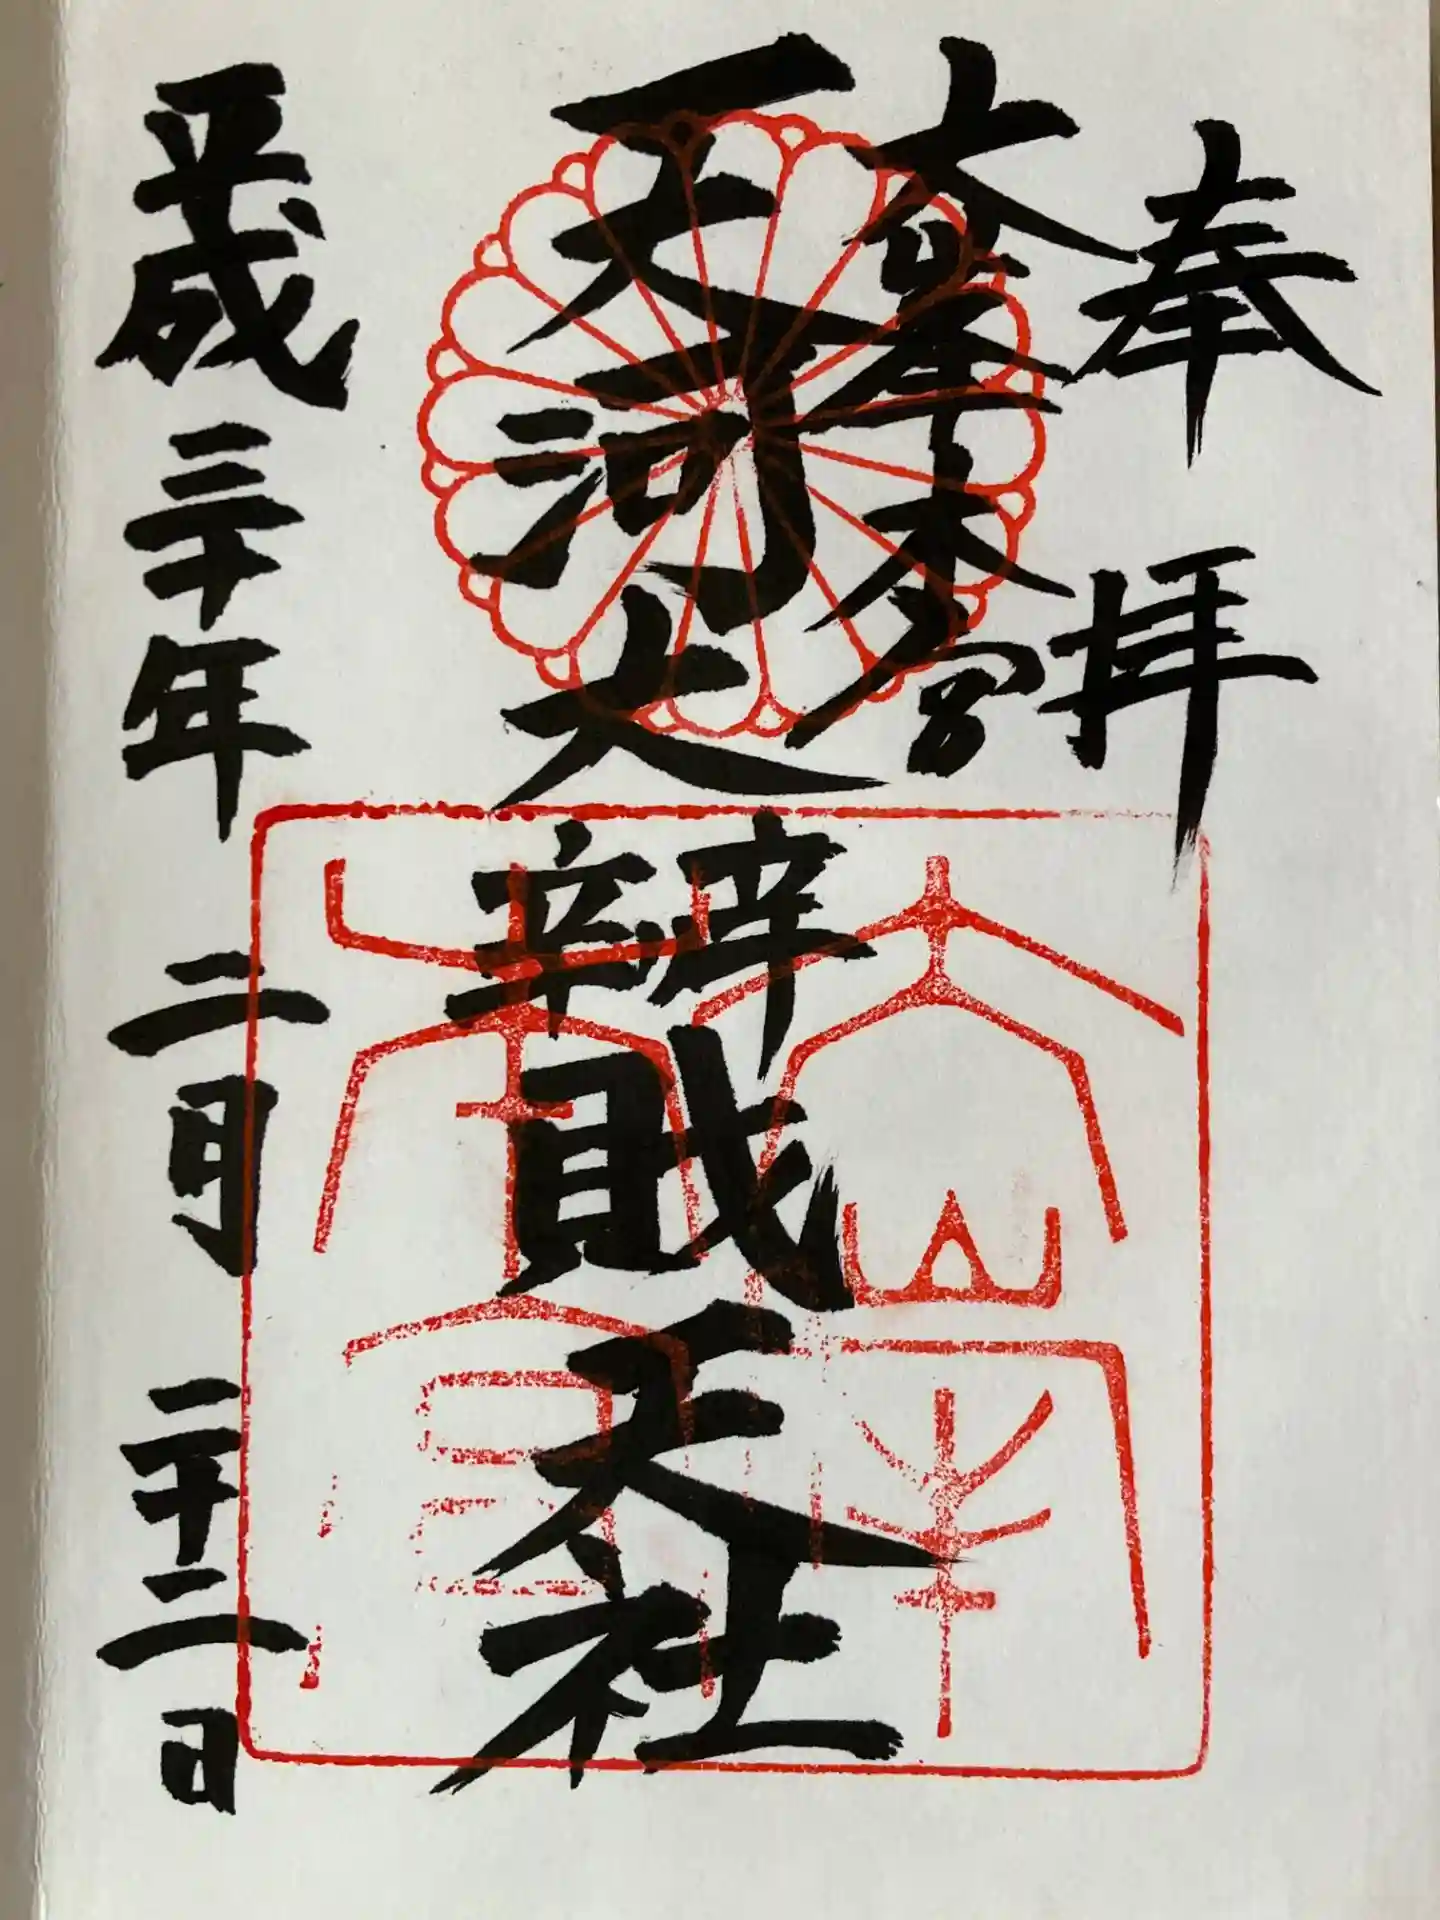 奉拝
大峯本宮
天河大辨財天社
平成三十年二月二十二日
大峯
本宮